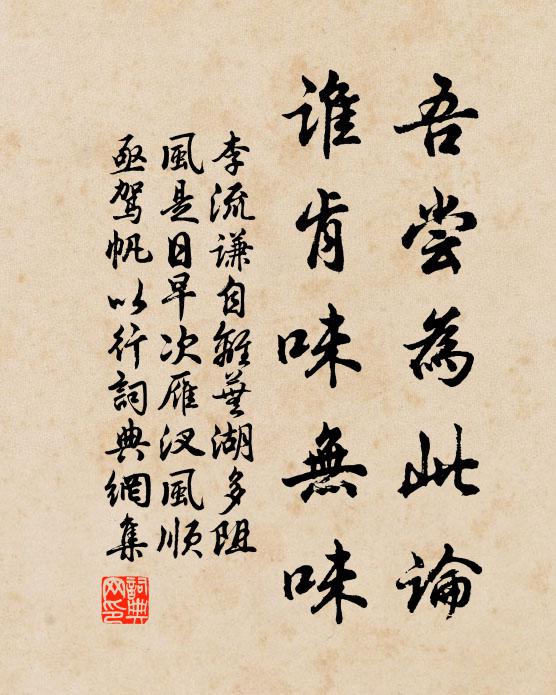 吾嘗為此論
誰肯味無味
李流謙自離蕪湖多阻
風是日早次雁汊風順
亟駕帆以行詞典網集
詞典網印